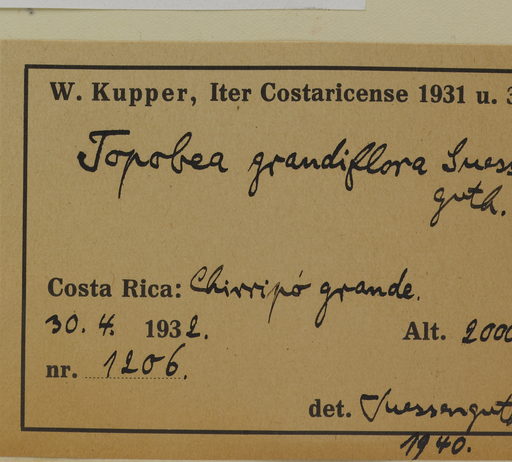 W. Kupper, Iter Costaricense 1931 u. 3
Topobea grandiflora Suess
guth.
Costa Rica: Chirripó grande.
30. 4. 1932. Alt. 2000
nr. 1206.
det. Suessenguth
1940.